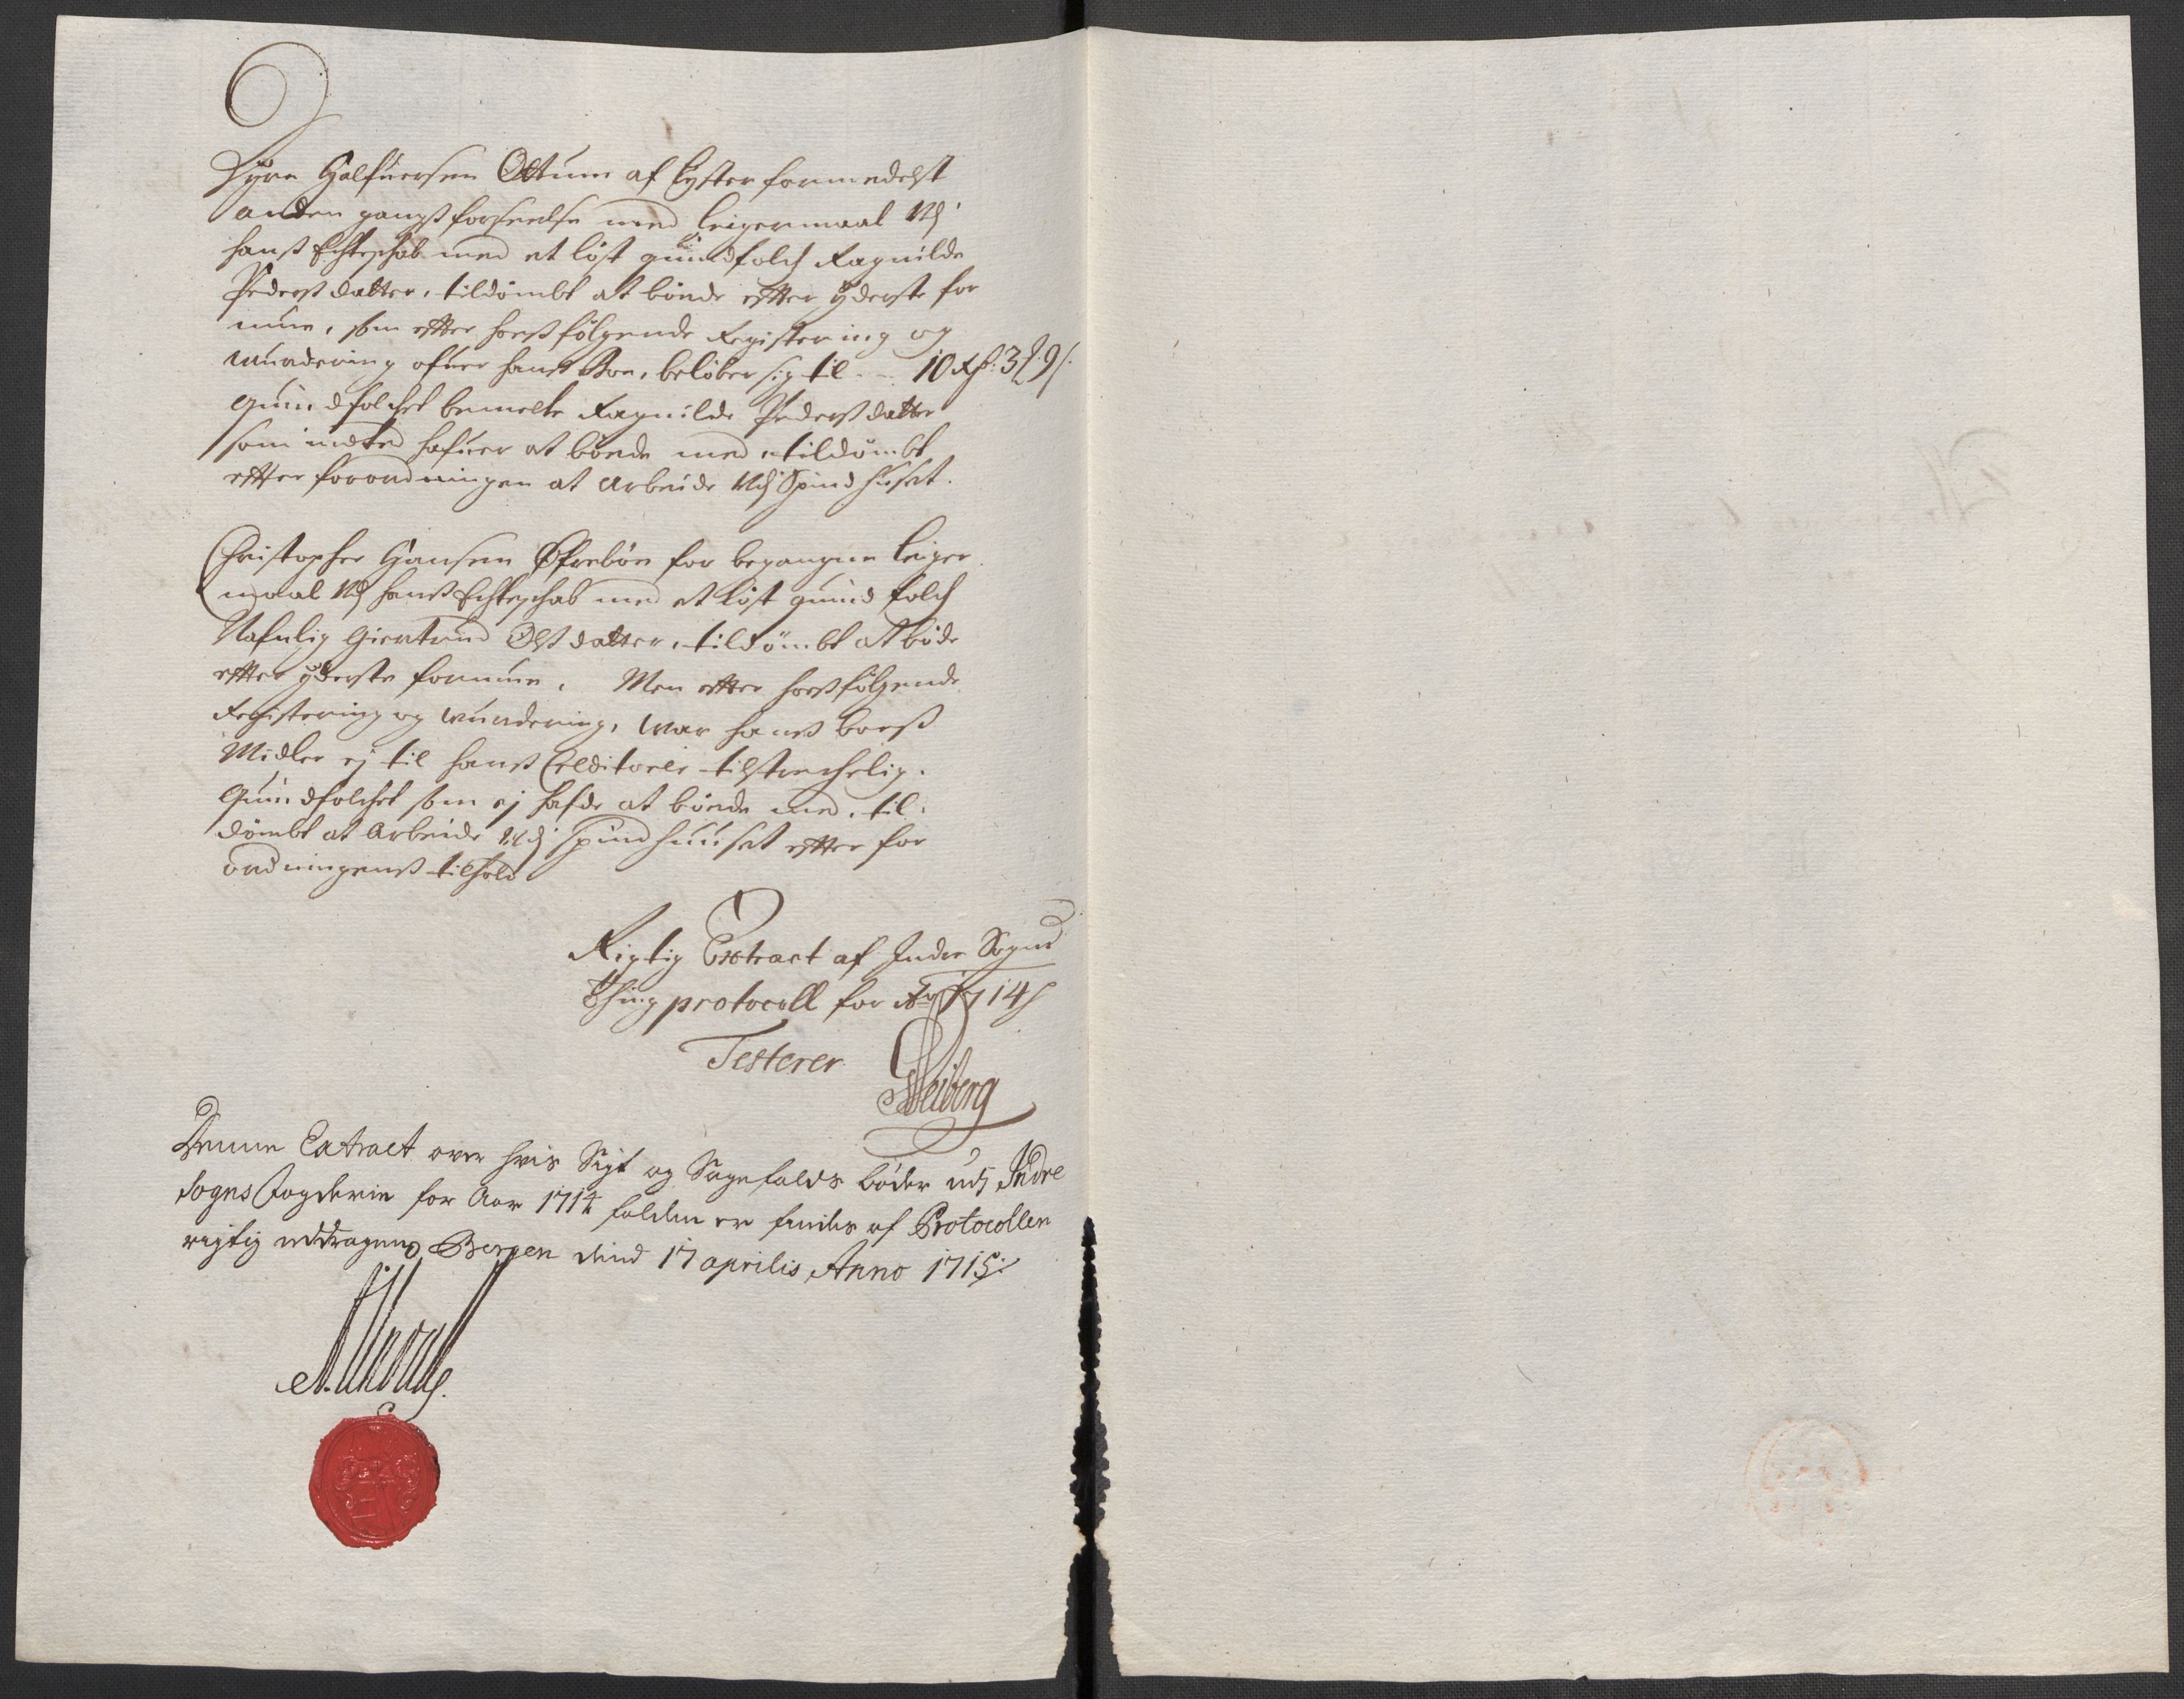 Siure Halfuersen Ottum af Lyster formedelst
anden gangs forseelse med leigermaal udj
hanß Echteschab med et løst quindfolch Ragnilde
Pedersdatter, tildømbt at bøede effter yderste for
mue, som effter hoesfølgende Registering og
wurdering ofuer hans Boe, beløber sig til - - 10 Rdr: 3 ℔ 9 s:
Quindfolchet bemelte Ragnilde Pedersdatter
som intted hafuer at bøede med, tildømbt
effter forordningen at Arbeide udj Spindhuset.
Christopher Hansen Øfrebøe for begangne leiger
maal udj hanß Echteschab med et løst quind folch
Nafnlig Giertrud Olsdatter, tildømbt at bøde
effter yderste formue, Men effter hoesfølgende
Registering og wurdering, war hanß boeß
Midler ej til hanß Creditorer tilstrechelig.
Quindfolchet som ej hafde at bøede med, til:
dømbt at Arbeide udj Spindhuuset effter for
ordningenß tilhold
Rigtig Extract af Indre Sogns
Thing protocoll for Ao 1714
Testerer
Leiberg
Denne Extract over hvis Sigt og Sagefalds bøder udj Indre
Sogns Fogderie for Aar 1714 falden er findes af Protocollen
rigtig uddragen, Bergen dend 17 aprilis Anno 1715